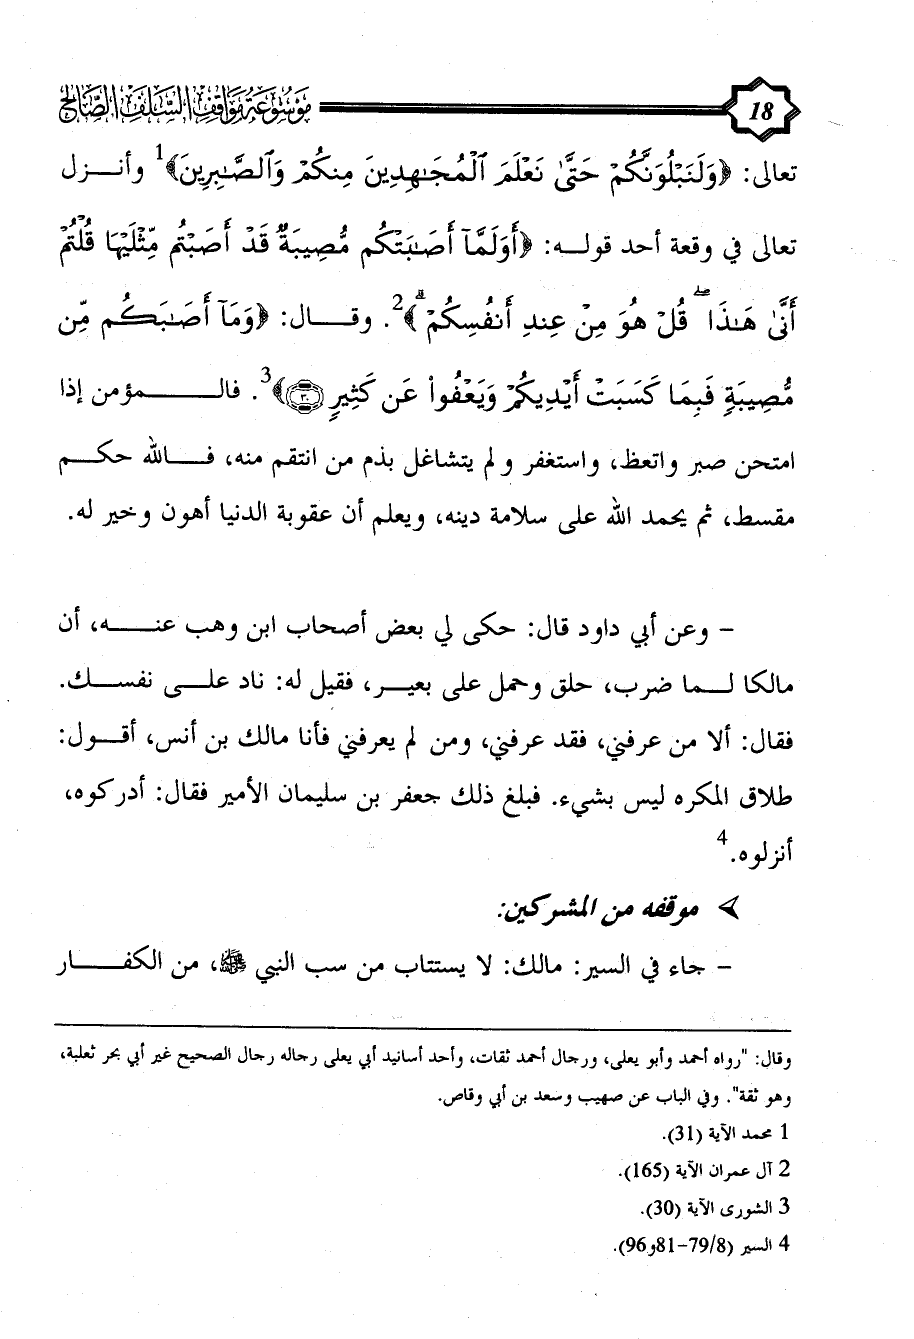 18 موسوعة مواقف السلف الصالح
تعالى: ﴿وَلَنَبْلُوَنَّكُمْ حَتَّىٰ نَعْلَمَ ٱلْمُجَـٰهِدِينَ مِنكُمْ وَٱلصَّـٰبِرِينَ﴾1 وأنـــزل
تعالى في وقعة أحد قولـــه: ﴿أَوَلَمَّآ أَصَـٰبَتْكُم مُّصِيبَةٌ قَدْ أَصَبْتُم مِّثْلَيْهَا قُلْتُمْ
أَنَّىٰ هَـٰذَا ۖ قُلْ هُوَ مِنْ عِندِ أَنفُسِكُمْ ۗ﴾2. وقـــال: ﴿وَمَآ أَصَـٰبَكُم مِّن
مُّصِيبَةٍ فَبِمَا كَسَبَتْ أَيْدِيكُمْ وَيَعْفُوا۟ عَن كَثِيرٍ ﴿٣٠﴾﴾3. فالـــمؤمن إذا
امتحن صبر واتعظ، واستغفر ولم يتشاغل بذم من انتقم منه، فـــالله حكـــم
مقسط، ثم يحمد الله على سلامة دينه، ويعلم أن عقوبة الدنيا أهون وخير له.
– وعن أبي داود قال: حكى لي بعض أصحاب ابن وهب عنـــه، أن
مالكا لـــما ضرب، حلق وحمل على بعيـــر، فقيل له: ناد علـــى نفســـك.
فقال: ألا من عرفني، فقد عرفني، ومن لم يعرفني فأنا مالك بن أنس، أقـــول:
طلاق المكره ليس بشيء. فبلغ ذلك جعفر بن سليمان الأمير فقال: أدركوه،
أنزلوه.4
⮚ موقفه من المشركين:
– جاء في السير: مالك: لا يستتاب من سب النبي ﷺ، من الكفـــار
وقال: "رواه أحمد وأبو يعلى، ورجال أحمد ثقات، وأحد أسانيد أبي يعلى رجاله رجال الصحيح غير أبي بحر ثعلبة،
وهو ثقة". وفي الباب عن صهيب وسعد بن أبي وقاص.
1 محمد الآية (31).
2 آل عمران الآية (165).
3 الشورى الآية (30).
4 السير (79/8–81و96).